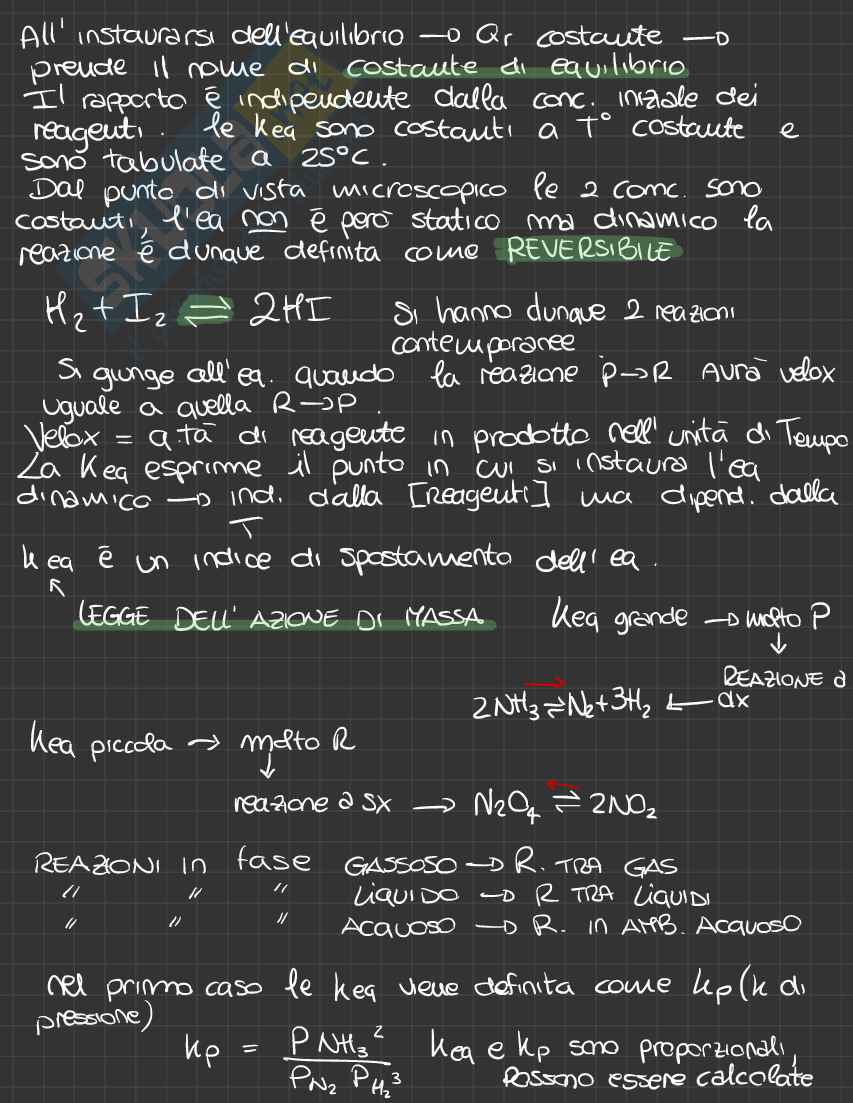 All'instaurarsi dell'equilibrio → Qr costante →
prende il nome di costante di equilibrio
Il rapporto è indipendente dalla conc. iniziale dei
reagenti. le Keq sono costanti a T° costante e
sono tabulate a 25°C.
Dal punto di vista microscopico le 2 conc. sono
costanti, l'eq non è però statico ma dinamico la
reazione è dunque definita come REVERSIBILE
H₂ + I₂ ⇌ 2HI si hanno dunque 2 reazioni
contemporanee
Si giunge all'eq. quando la reazione P→R AVRÀ velox
uguale a quella R→P.
Velox = q.tà di reagente in prodotto nell'unità di Tempo
La Keq esprime il punto in cui si instaura l'eq
dinamico → ind. dalla [Reagenti] ma dipend. dalla
T
Keq è un indice di spostamento dell'eq.
LEGGE DELL'AZIONE DI MASSA Keq grande → molto P
REAZIONE a
2NH₃ ⇌ N₂+3H₂ ← dx
Keq piccola → molto R
reazione a sx → N₂O₄ ⇌ 2NO₂
REAZIONI in fase GASSOSO → R. TRA GAS
" " " LIQUIDO → R TRA LIQUIDI
" " " ACQUOSO → R. in AMB. ACQUOSO
nel primo caso le Keq viene definita come Kp (K di
pressione)
Kp = P NH₃² / P N₂ P H₂³ Keq e Kp sono proporzionali,
Possono essere calcolate